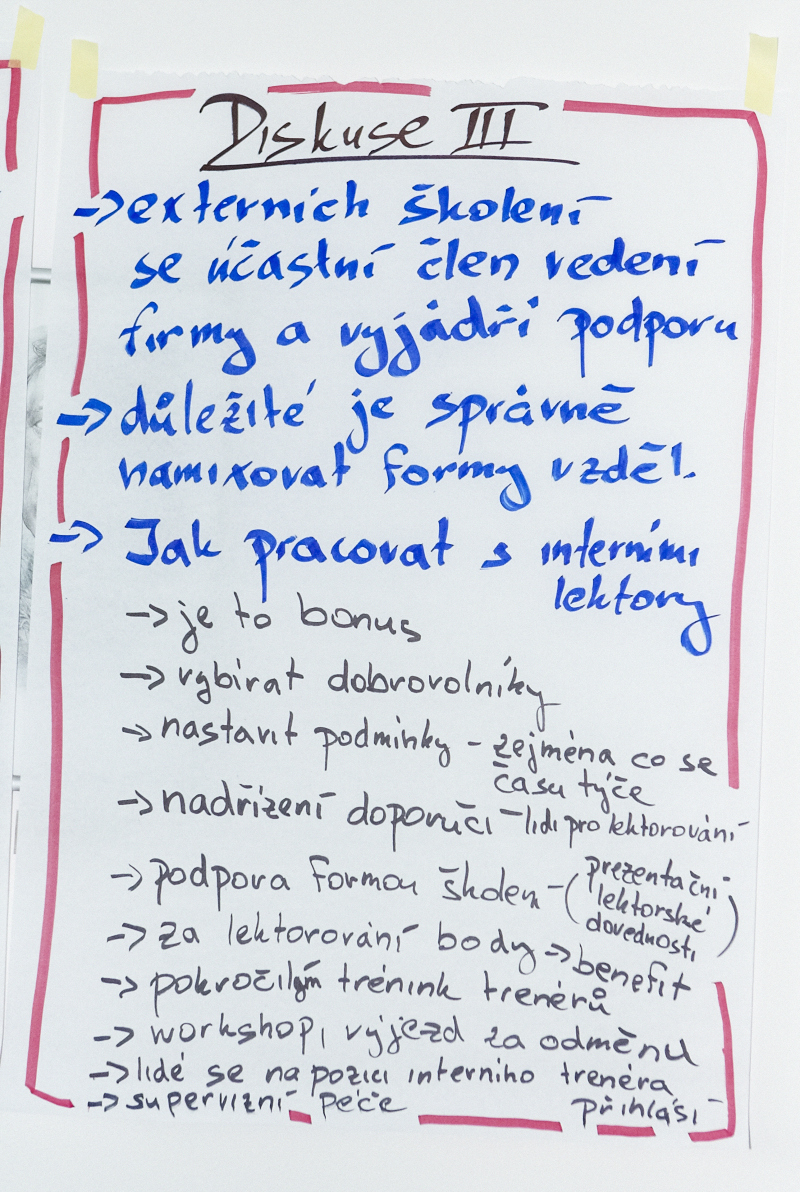 Diskuse III
→ externích školení
se účastní člen vedení
firmy a vyjádří podporu
→ důležité je správně
namixovat formy vzděl.
→ Jak pracovat s interními
lektory
→ je to bonus
→ vybírat dobrovolníky
→ nastavit podmínky - zejména co se
času týče
→ nadřízení doporučí - lidi pro lektorování
→ podpora formou školen - (prezentační
lektorské
dovednosti)
→ za lektorování body → benefit
→ pokročilým trénink trenérů
→ workshop, výjezd za odměnu
→ lidé se na pozici interního trenéra
přihlásí
→ supervizní péče